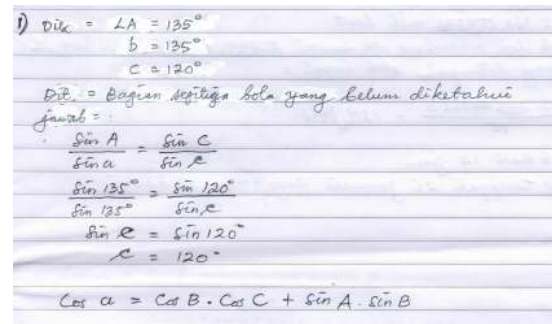 1) Dik = ∠A = 135°
b = 135°
C = 120°
Dit = Bagian segitiga bola yang belum diketahui
jawab = :
Sin A / Sin a = Sin C / Sin c
Sin 135° / Sin 135° = Sin 120° / Sin c
Sin c = Sin 120°
c = 120°
Cos a = Cos B . Cos C + Sin A . Sin B